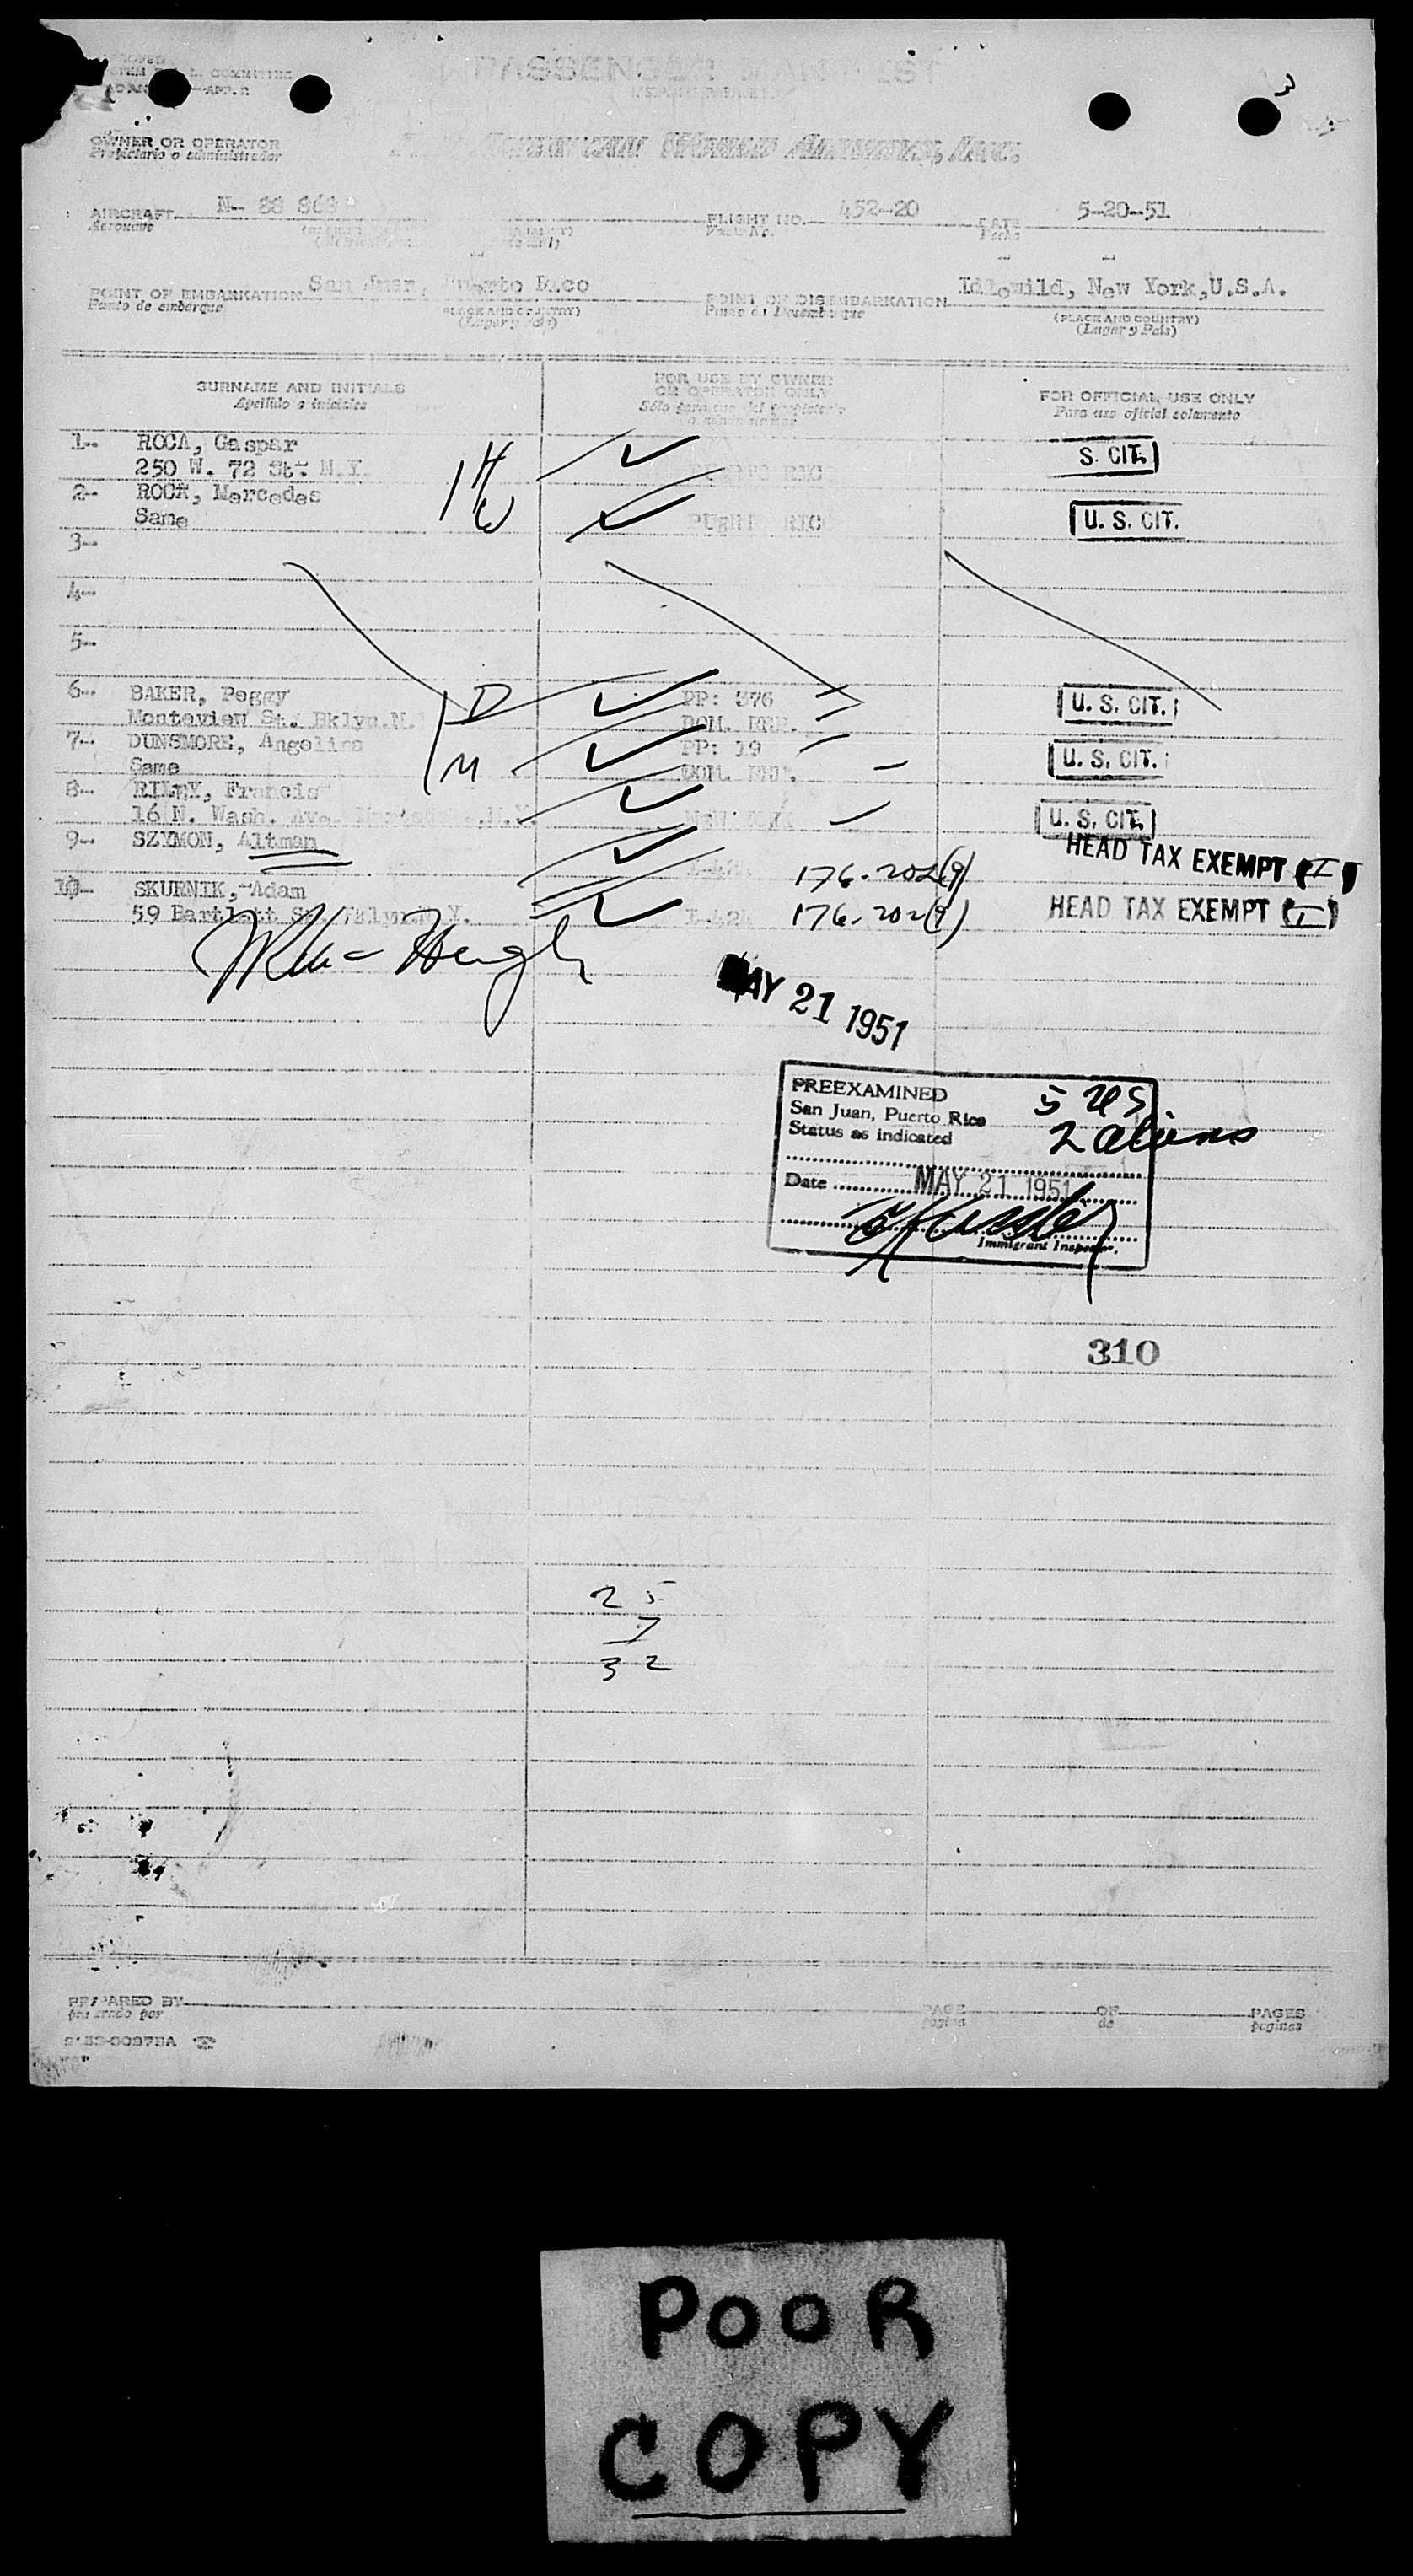 PASSENGER MANIFEST
3
OWNER OR OPERATOR
Propietario o administrador
AMERICAN WORLD AIRWAYS, INC.
AIRCRAFT N- 88 868 FLIGHT NO. 452-20 DATE 5-20-51
Aeronave Vuelo No. Fecha
POINT OF EMBARKATION San Juan, Puerto Rico POINT OF DISEMBARKATION Idlewild, New York, U.S.A.
Punto de embarque (PLACE AND COUNTRY) Punto de Desembarque (PLACE AND COUNTRY)
(Lugar y País) (Lugar y País)
SURNAME AND INITIALS FOR USE BY OWNER OR OPERATOR ONLY FOR OFFICIAL USE ONLY
Apellido e iniciales Para uso oficial solamente
1-- ROCA, Gaspar H PUERTO RICO S. CIT.
250 W. 72 St. N.Y.
2-- ROCA, Mercedes W PUERTO RICO U. S. CIT.
Same
3--
4--
5--
6-- BAKER, Peggy D PP: 376 U. S. CIT.
Monteview St. Bklyn.N. DOM. REP.
7-- DUNSMORE, Angelina M PP: 19 U. S. CIT.
Same DOM. REP.
8-- RILEY, Francis NEW YORK U. S. CIT.
16 N. Wash. Ave. N.Y.
9-- SZYMON, Altman 176.202(9) HEAD TAX EXEMPT (I)
10- SKURNIK, Adam 176.202(9) HEAD TAX EXEMPT (I)
59 Bartlett St. Bklyn N.Y. I-424
MAY 21 1951
PREEXAMINED 5 US
San Juan, Puerto Rico 2 aliens
Status as indicated
Date MAY 21 1951
Immigrant Inspector.
310
25
7
32
PREPARED BY PAGE OF PAGES
preparado por página de páginas
POOR
COPY